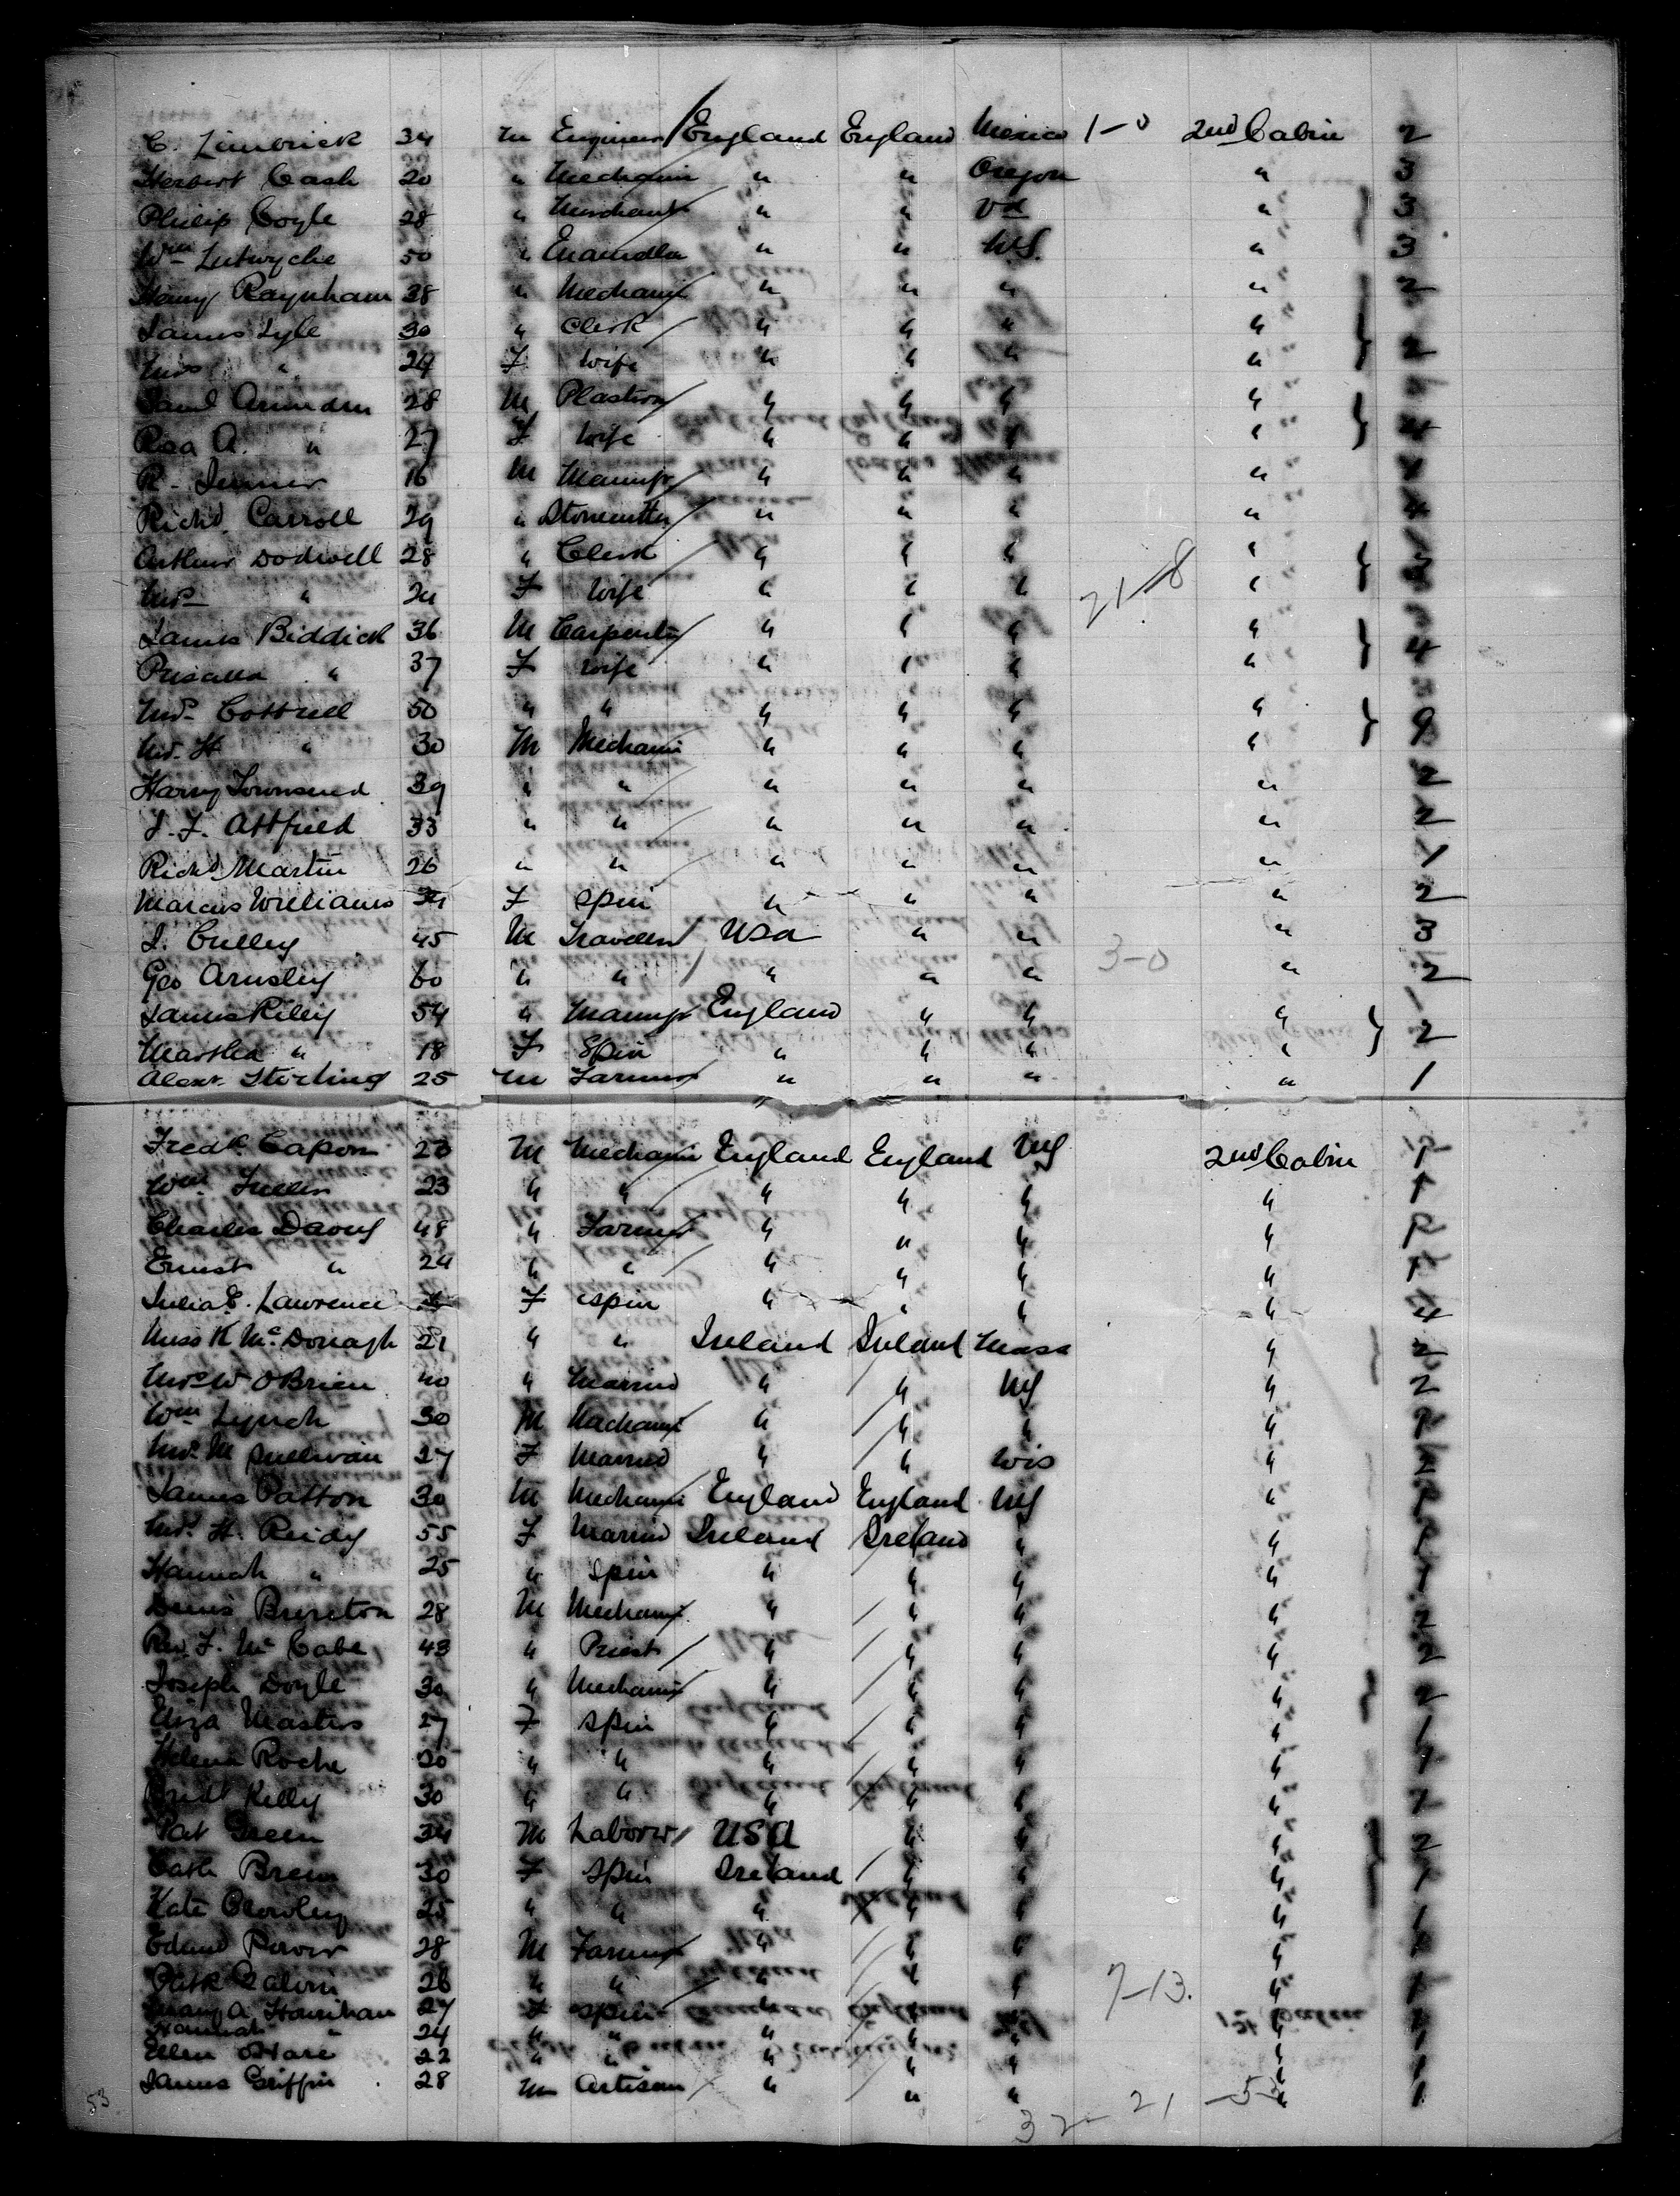 C. Limbrick 34 M Engineer England England Mexico 1-0 2nd Cabin 2
Herbert Cash 20 " Mechanic " " Oregon " 3
Philip Coyle 28 " Merchant " " " 3
Wm Lutwyche 50 " " " NY " 3
Henry Raynham 38 " Mechanic " " " " 2
James Lyle 30 " Clerk " " " "
Mrs " 24 F Wife " " " " 2
Saml 28 M Plasterer " " " "
Rosa A. " 27 F Wife " " " " 4
R. Jenner 16 M Manufr " " " "
Richd Carroll 29 " Stonecutter " " " " 4
Arthur Dodwell 28 " Clerk " " " "
Mrs " 24 F Wife " " " 21-8 "
James Biddick 36 M Carpenter " " " "
" 37 F Wife " " " " 4
Mrs Cottrell 50 " " " " " "
" 30 M Mechanic " " " " 9
Harry Townsend 39 " " " " " " 2
Attfield 33 " " " " " " 2
Richd Martin 26 " " " " " " 1
Marcus Williams 34 F Spin " " " " 2
Culley 45 M Traveller USA " " 3-0 " 3
Geo Arnsley 60 " " " " " " 2
James Riley 54 " Manufr England " " "
Martha " 18 F Spin " " " " 2
Alexr Sterling 25 M Farmer " " " " 1
Fredk Capon 23 M Mechanic England England NY 2nd Cabin
Wm Fuller 23 " " " " " " 1
Charles Davey 48 " Farmer " " " "
Ernest " 24 " " " " " " 1
Julia E. Lawrence F Spin " " " " 4
Miss K McDonagh 21 " " Ireland Ireland Mass " 2
Mrs W OBrien 40 " Married " " NY " 2
Wm Lynch 30 M Mechanic " " " "
Mrs M Sullivan 27 F Married " " Wis "
James Patton 30 M Mechanic England England NY "
Mrs H. Reidy 55 F Married Ireland Ireland " "
Hannah " 25 " Spin " " " "
Denis Brereton 28 M Mechanic " " " " 2
Rev F. McCabe 43 " Priest " " " " 2
Joseph Doyle 30 " Mechanic " " " " 2
Eliza Masters 27 F Spin " " " " 1
Helena Roche 20 " " " " " " 1
Bridt Kelly 30 " " " " " "
Pat Green 34 M Laborer USA " " " 2
Cath Breen 30 F Spin Ireland " " "
Kate Crowley 25 " " " " " " 1
Edmd Power 28 M Farmer " " " "
Patk Galvin 26 " " " " " 7-13. "
Mary A Hourihan 27 F Spin " " " "
Hannah " 24 " " " " " "
Ellen OHare 22 " " " " " "
James Griffin 28 M Artisan " " " " 1
53 32-21-53